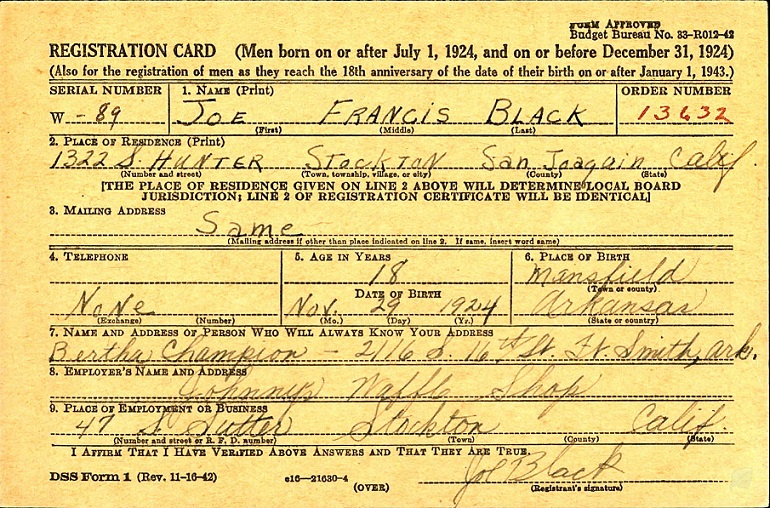 FORM APPROVED
Budget Bureau No. 33-R012-42
REGISTRATION CARD (Men born on or after July 1, 1924, and on or before December 31, 1924)
(Also for the registration of men as they reach the 18th anniversary of the date of their birth on or after January 1, 1943.)
SERIAL NUMBER 1. NAME (Print) ORDER NUMBER
W - 89 JOE FRANCIS BLACK 13632
(First) (Middle) (Last)
2. PLACE OF RESIDENCE (Print)
1322 S. HUNTER STOCKTON San Joaquin Calif
(Number and street) (Town, township, village, or city) (County) (State)
[THE PLACE OF RESIDENCE GIVEN ON LINE 2 ABOVE WILL DETERMINE LOCAL BOARD
JURISDICTION; LINE 2 OF REGISTRATION CERTIFICATE WILL BE IDENTICAL]
3. MAILING ADDRESS
Same
(Mailing address if other than place indicated on line 2. If same, insert word same)
4. TELEPHONE 5. AGE IN YEARS 6. PLACE OF BIRTH
18 Mansfield
DATE OF BIRTH (Town or county)
None Nov. 29 1924 Arkansas
(Exchange) (Number) (Mo.) (Day) (Yr.) (State or country)
7. NAME AND ADDRESS OF PERSON WHO WILL ALWAYS KNOW YOUR ADDRESS
Bertha Champion - 2116 S. 16th St. Ft Smith, Ark.
8. EMPLOYER'S NAME AND ADDRESS
Johnny's Waffle Shop
9. PLACE OF EMPLOYMENT OR BUSINESS
47 S. Sutter Stockton Calif.
(Number and street or R. F. D. number) (Town) (County) (State)
I AFFIRM THAT I HAVE VERIFIED ABOVE ANSWERS AND THAT THEY ARE TRUE.
Joe Black
DSS Form 1 (Rev. 11-16-42) e16-21630-4 (Registrant's signature)
(OVER)